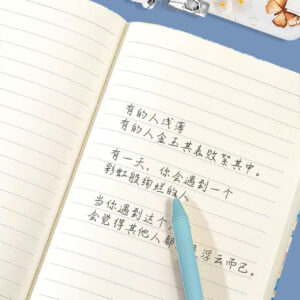 有的人浅薄
有的人金玉其表败絮其中。
有一天，你会遇到一个
彩虹般绚烂的人
当你遇到这个
会觉得其他人都 浮云而已。